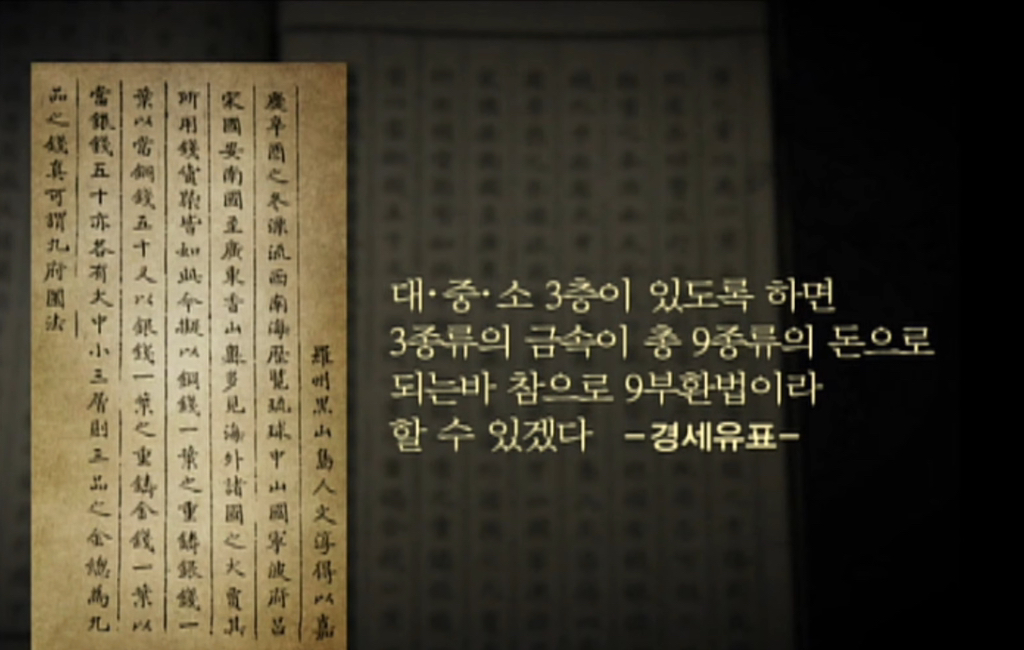 羅州黑山島人文淳得以嘉
慶辛酉之冬漂流西南海歷覽琉球中山國寧波府呂
宋國安南國至廣東香山奧多見海外諸國之大賈其
所用錢貨槩皆如此今擬以銅錢一葉之重鑄銀錢一
葉以當銅錢五十又以銀錢一葉之重鑄金錢一葉以
當銀錢五十亦各有大中小三層則三品之金總為九
品之錢真可謂九府圜法
대·중·소 3층이 있도록 하면
3종류의 금속이 총 9종류의 돈으로
되는바 참으로 9부환법이라
할 수 있겠다 -경세유표-